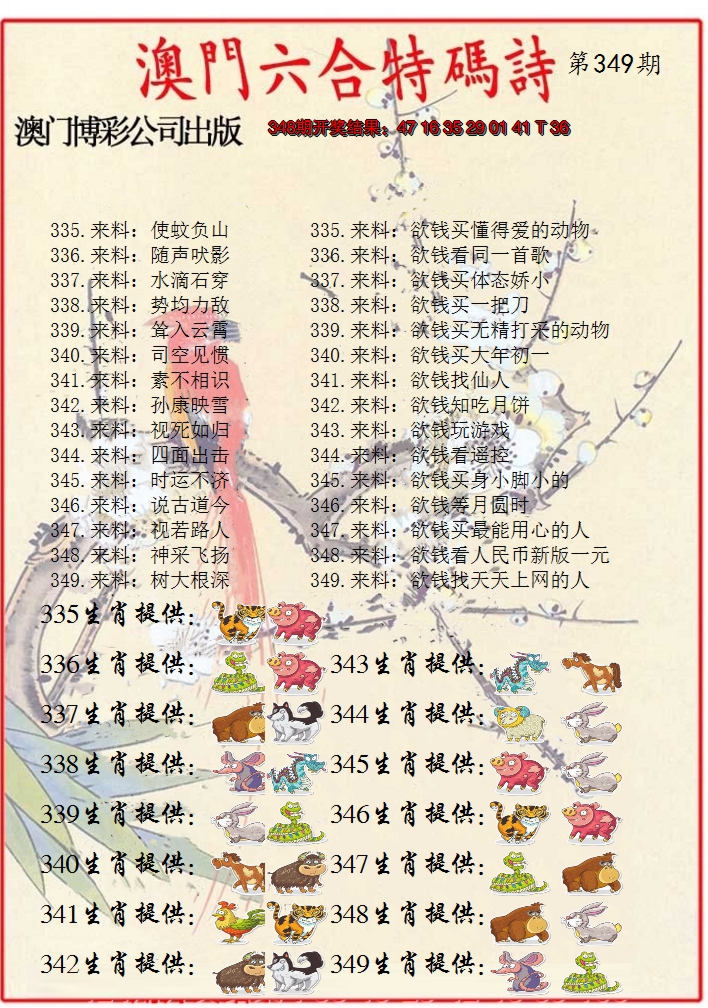 澳門六合特碼詩 第349期
澳门博彩公司出版 348期开奖结果：47 16 35 29 01 41 T 36
335.来料：使蚊负山 335.来料：欲钱买懂得爱的动物
336.来料：随声吠影 336.来料：欲钱看同一首歌
337.来料：水滴石穿 337.来料：欲钱买体态娇小
338.来料：势均力敌 338.来料：欲钱买一把刀
339.来料：耸入云霄 339.来料：欲钱买无精打采的动物
340.来料：司空见惯 340.来料：欲钱买大年初一
341.来料：素不相识 341.来料：欲钱找仙人
342.来料：孙康映雪 342.来料：欲钱知吃月饼
343.来料：视死如归 343.来料：欲钱玩游戏
344.来料：四面出击 344.来料：欲钱看遥控
345.来料：时运不济 345.来料：欲钱买身小脚小的
346.来料：说古道今 346.来料：欲钱等月圆时
347.来料：视若路人 347.来料：欲钱买最能用心的人
348.来料：神采飞扬 348.来料：欲钱看人民币新版一元
349.来料：树大根深 349.来料：欲钱找天天上网的人
335生肖提供：
336生肖提供： 343生肖提供：
337生肖提供： 344生肖提供：
338生肖提供： 345生肖提供：
339生肖提供： 346生肖提供：
340生肖提供： 347生肖提供：
341生肖提供： 348生肖提供：
342生肖提供： 349生肖提供：